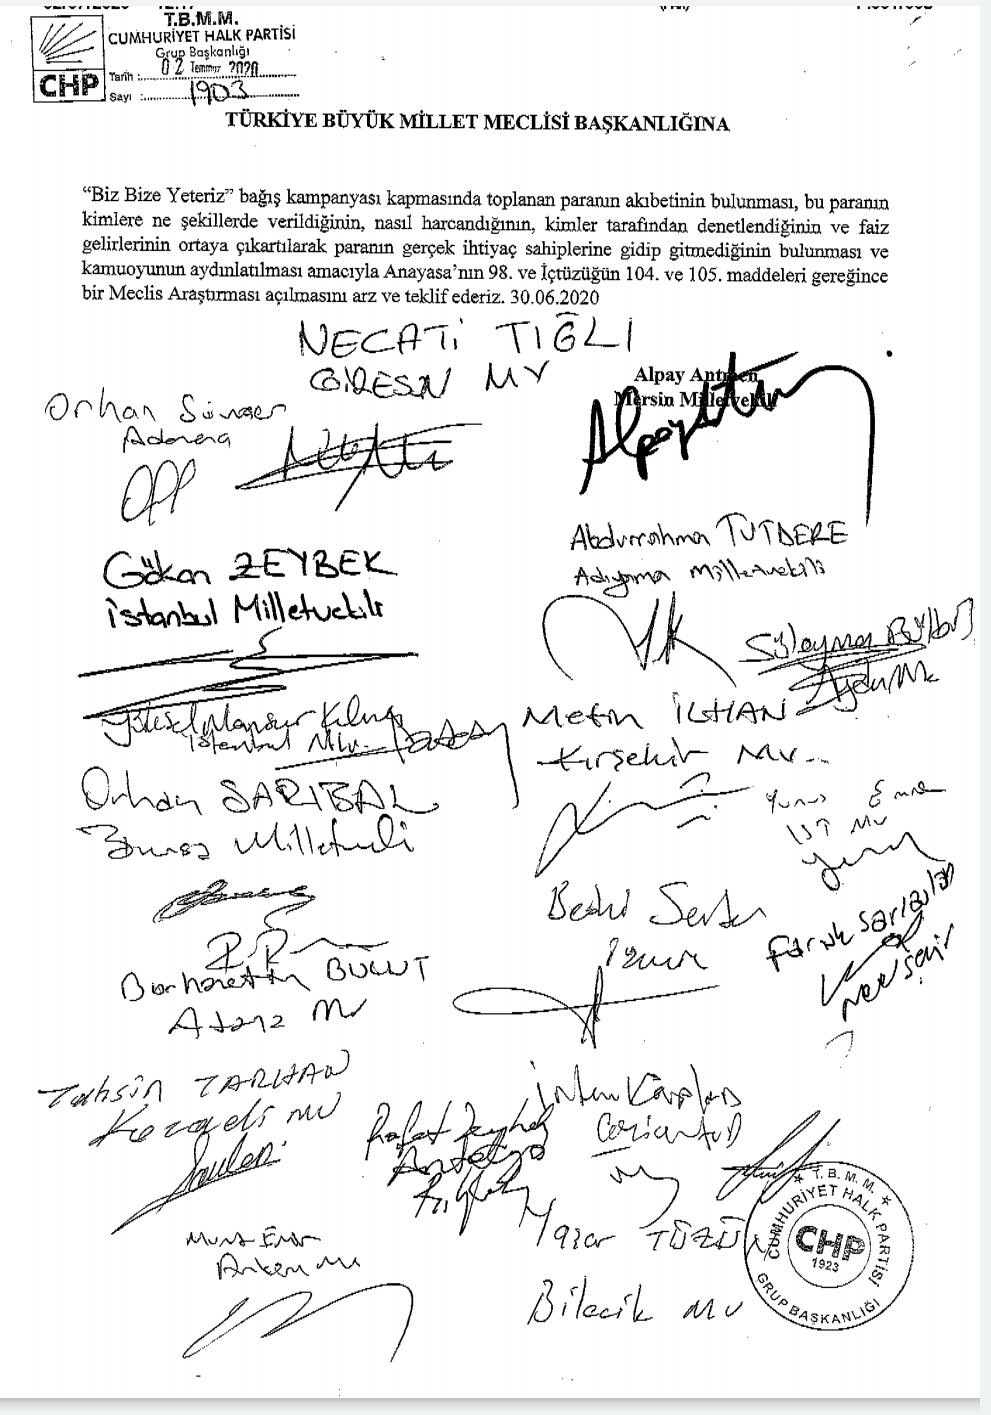 T.B.M.M.
CUMHURİYET HALK PARTİSİ
Grup Başkanlığı
CHP
Tarih : 02 Temmuz 2020
Sayı : 1903
TÜRKİYE BÜYÜK MİLLET MECLİSİ BAŞKANLIĞINA
“Biz Bize Yeteriz” bağış kampanyası kapmasında toplanan paranın akıbetinin bulunması, bu paranın
kimlere ne şekillerde verildiğinin, nasıl harcandığının, kimler tarafından denetlendiğinin ve faiz
gelirlerinin ortaya çıkartılarak paranın gerçek ihtiyaç sahiplerine gidip gitmediğinin bulunması ve
kamuoyunun aydınlatılması amacıyla Anayasa’nın 98. ve İçtüzüğün 104. ve 105. maddeleri gereğince
bir Meclis Araştırması açılmasını arz ve teklif ederiz. 30.06.2020
NECATİ TIĞLI
GİRESN MV
Alpay Antmen
Mersin Milletvekili
Orhan Sümer
Adana
Abdurrahman TUTDERE
Adıyaman Milletvekili
Gökan ZEYBEK
İstanbul Milletvekili
Süleyman Bülbül
Aydın Mv
Yüksel Mansur Kılınç
İstanbul Mv.
Metin İLHAN
Kırşehir MV..
Orhan SARIBAL
Bursa Milletvekili
Yunus Emre
İST MV
Bedri Serter
İzmir
Faruk Sarıaslan
Nevşehir
Burhanettin BULUT
Adana Mv
Tahsin TARHAN
Kocaeli MV
İrfan Kaplan
Gaziantep
Rafet Zeybek
Antalya
Yaşar TÜZÜN
Bilecik MV
Murat Emir
Ankara Mv
T. B. M. M.
CUMHURİYET HALK PARTİSİ
CHP
1923
GRUP BAŞKANLIĞI